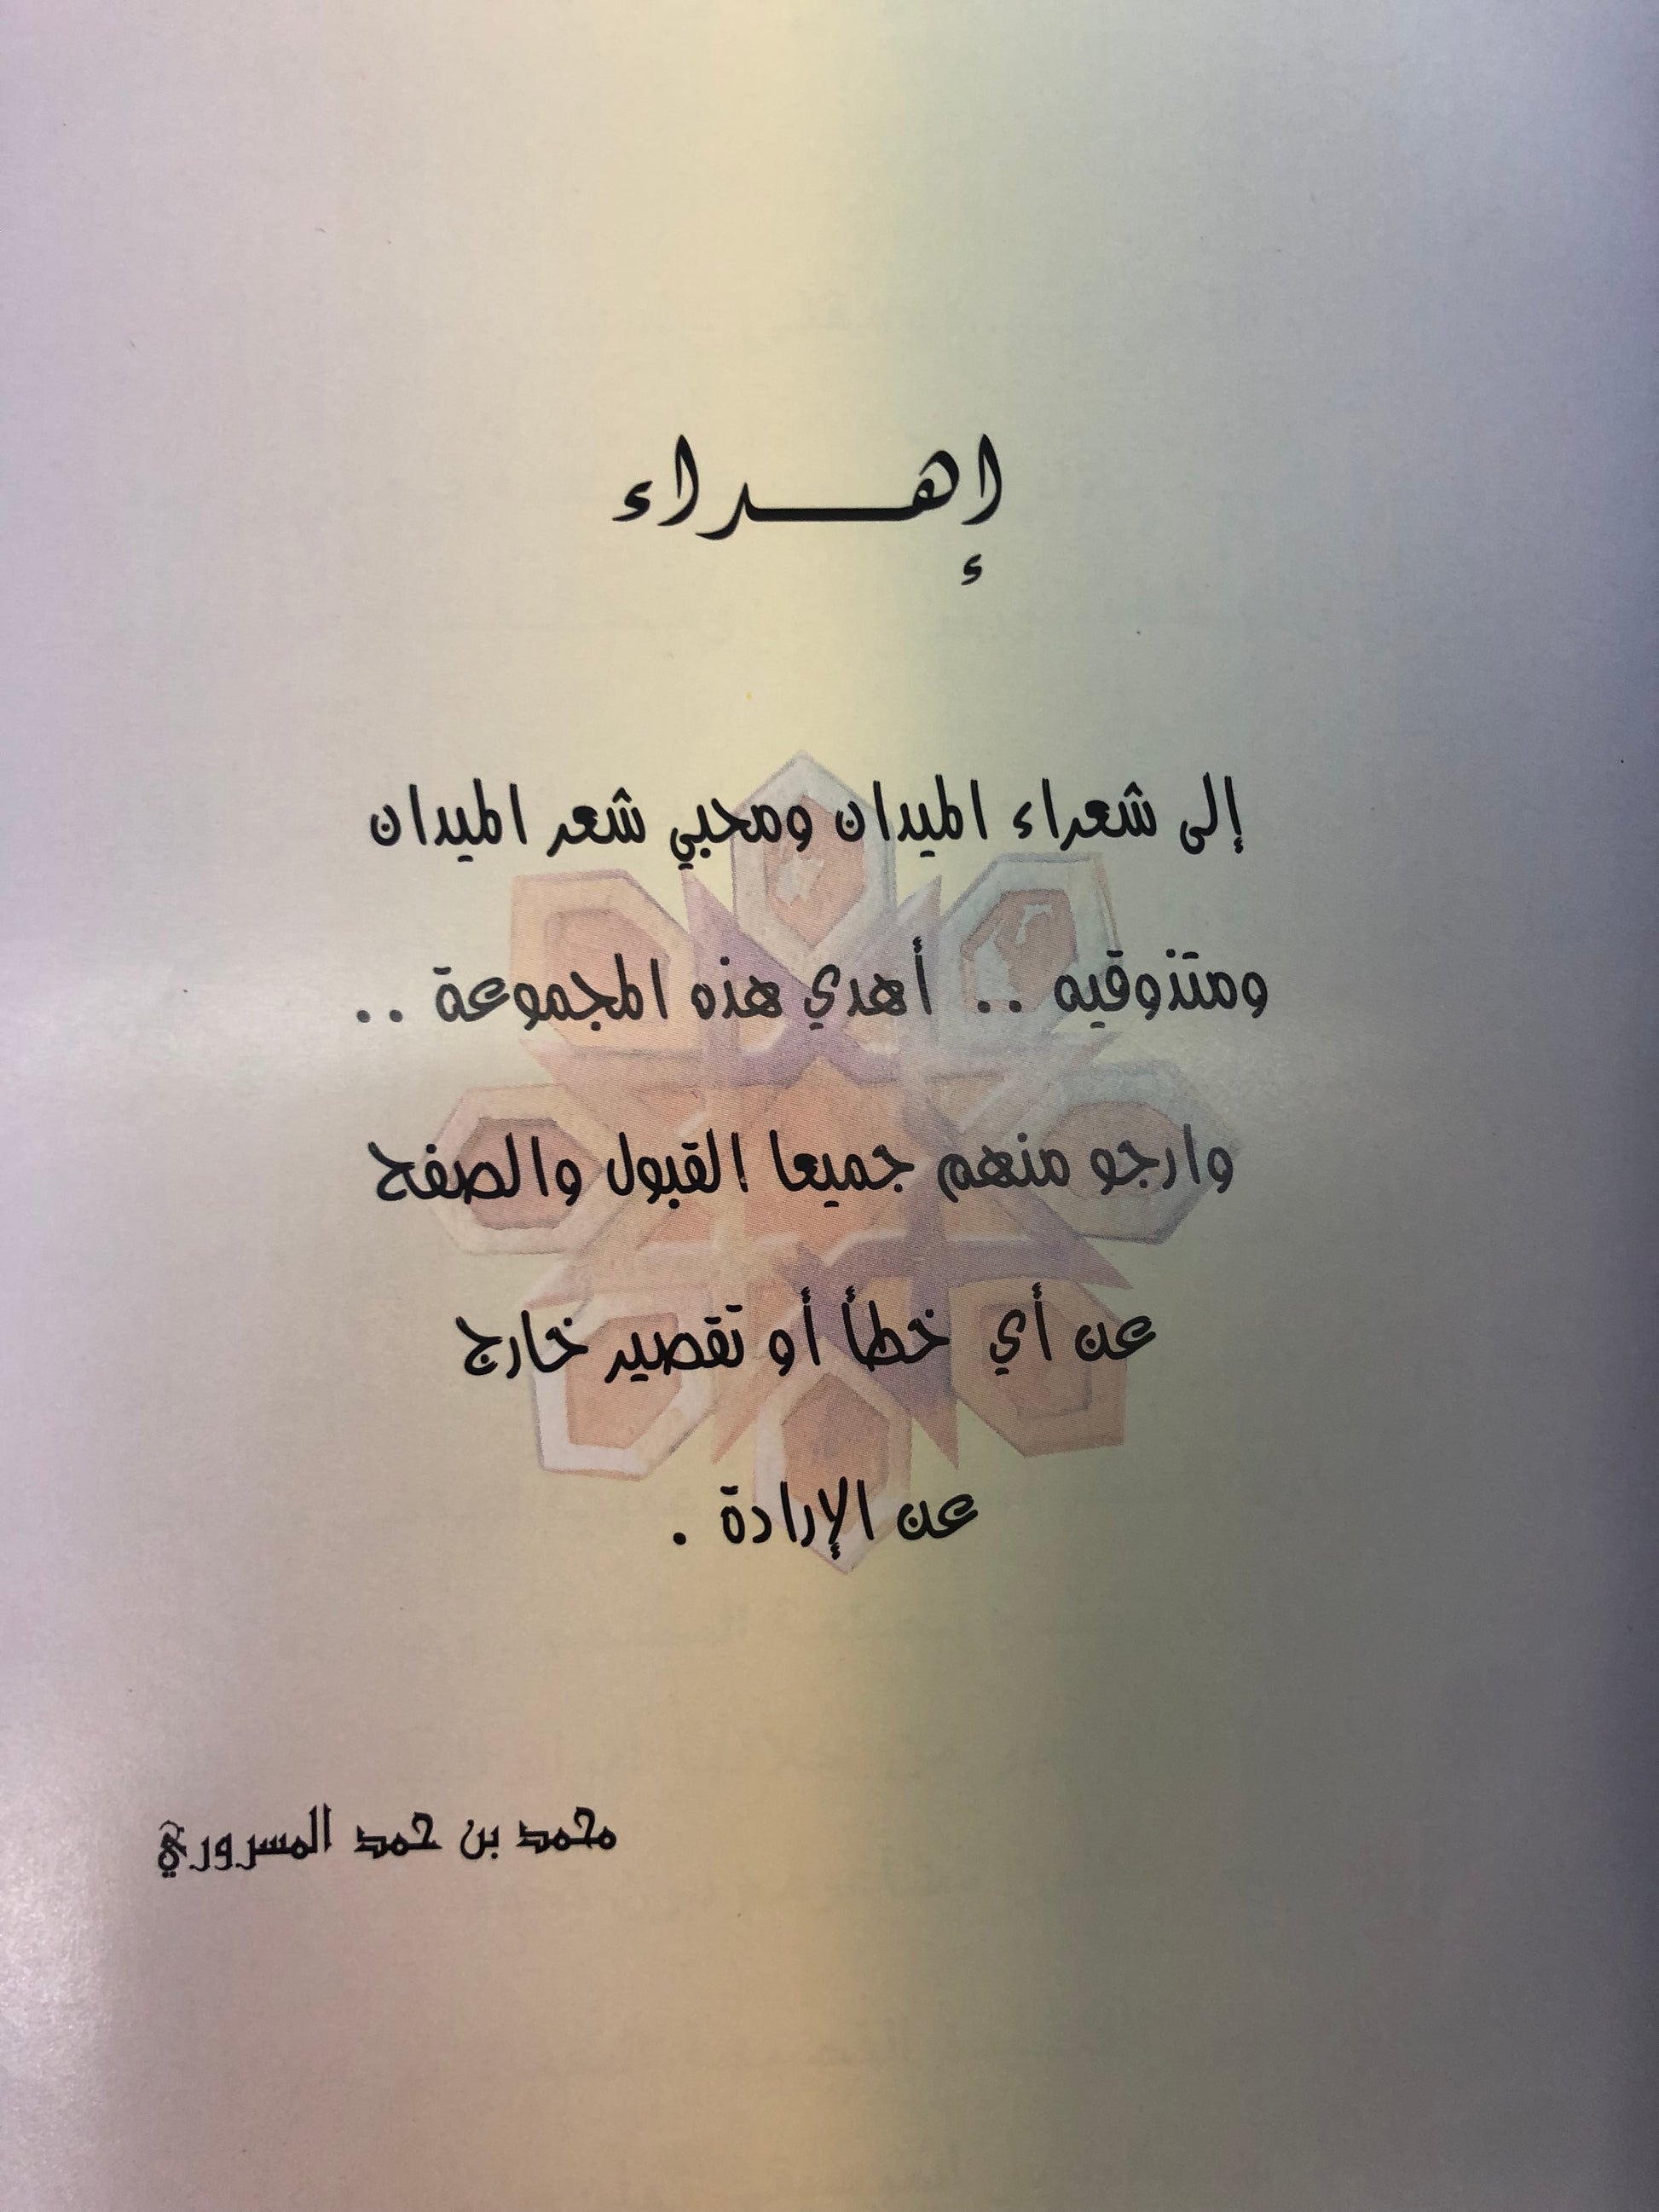 إهـــداء
إلى شعراء الميدان ومحبي شعر الميدان
ومتذوقيه .. أهدي هذه المجموعة ..
وارجو منهم جميعا القبول والصفح
عن أي خطأ أو تقصير خارج
عن الإرادة .
محمد بن حمد المسروري